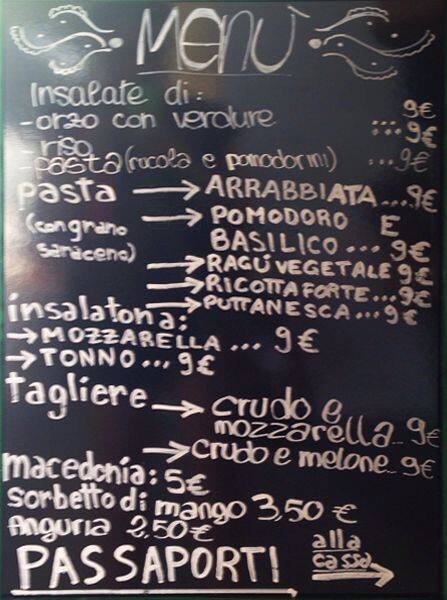 MENÙ
Insalate di:
-orzo con verdure 9€
-riso ...9€
-pasta (rucola e pomodorini) ...9€
pasta → ARRABBIATA....9€
(con grano saraceno) → POMODORO E
BASILICO...9€
→ RAGÙ VEGETALE 9€
→ RICOTTA FORTE...9€
→ PUTTANESCA...9€
insalatona:
→ MOZZARELLA ... 9€
→ TONNO... 9€
tagliere → crudo e
mozzarella...9€
→ crudo e melone...9€
macedonia: 5€
sorbetto di mango 3,50 €
Anguria 2,50€
PASSAPORTI alla
cassa →